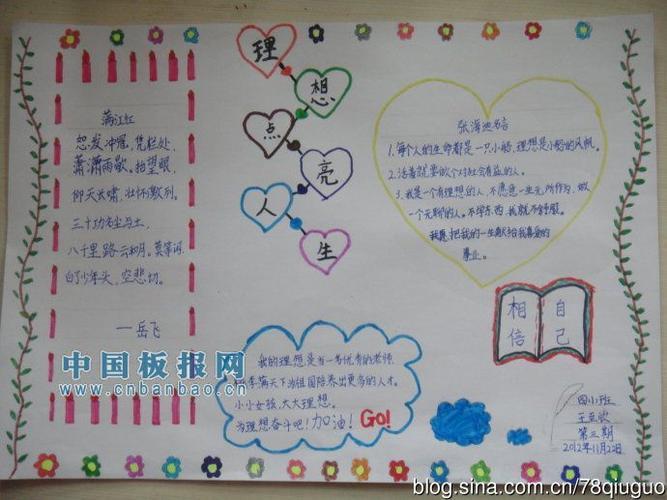 理想点亮人生
满江红
怒发冲冠, 凭栏处,
潇潇雨歇。抬望眼,
仰天长啸, 壮怀激烈。
三十功名尘与土,
八千里路云和月。莫等闲
白了少年头, 空悲切。
—岳飞
张海迪名言
1.每个人的生命都是一只小船,理想是小船的风帆。
2.活着就要做个对社会有益的人。
3.我是一个有理想的人,不愿意一生无所作为,做
一个无聊的人。不学东西,我就不舒服。
我愿把我的一生献给我喜爱的
事业。
相信
自己
我的理想是当一名优秀的老师,
桃李满天下为祖国培养出更多的人才。
小小女孩,大大理想。
为理想奋斗吧!加油!Go!
四小班
第三期
2012年11月2日
中国板报网
www.cnbanbao.cn
blog.sina.com.cn/78qiuguo